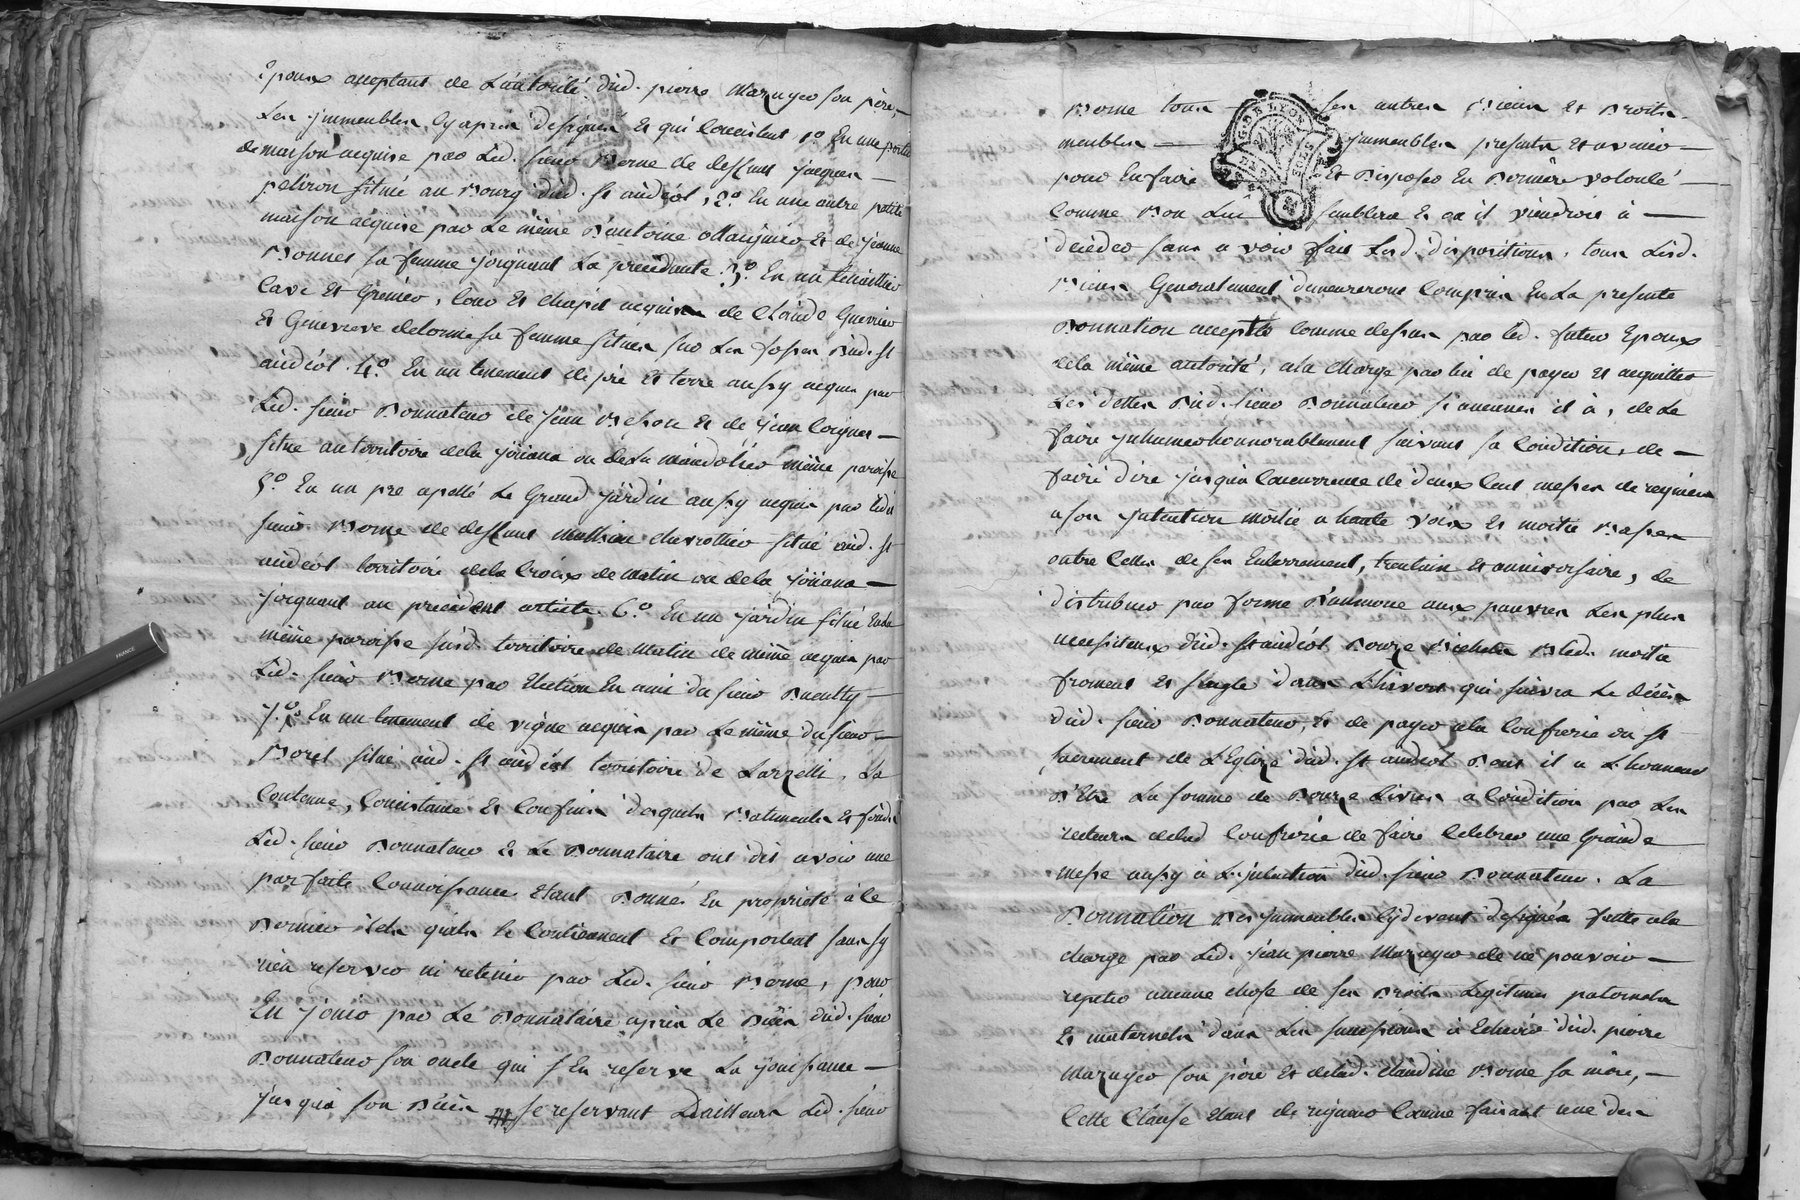 Epoux acceptant de L'autorité dud. pierre Mazuyer son père,
Les jmmeubles cy apres designés Et qui Consistent 1.º En une portion
de maison acquise par Led. sieur Borne de deffunt jacques
petiron situé au Bourg dud. St andéol, 2.º En une autre petite
maison acquise par Le même D'antoine et de jeanne
Bonnet sa femme joignant La precedante 3.º En un
Cave Et Grenier, Cour Et Chapit acquis de Claude Guerrier
Et Genevieve delorme sa femme situés sur Les fosses Dud. St
andéol. 4.º En un tenement de pré Et terre aussy acquis par
Led. sieur Donnateur de jean et de jean
situé au territoire de la joüana ou de la même paroisse
5.º En un pre apellé Le Grand jardin aussy acquis par Ledit
sieur Borne de deffunt chevrottier situé aud. St
andéol territoire de la Croix de Matin ou de la joüana
joignant au precedent article. 6.º En un jardin situé En la
même paroisse susd. territoire de Matin de même acquis par
Led. sieur Borne par Election En ami du sieur
7.º En un tenement de vigne acquis par Le même du sieur
Borel situé aud. St andéol territoire de Larzelli, La
Contenue, Consistance Et Confins desquels Batiments Et fonds
Led. sieur Donnateur Et Le Donnataire ont dit avoir une
parfaite Connoissance Etant Donnés En propriété à Ce
Dernier tels quels se Contiennent Et Comportent sans sy
rien reserver ni retenir par Led. sieur Borne, pour
En jouir par Le Donnataire apres Le Décès dud. sieur
Donnateur son oncle qui s'En reserve La jouissance
jusqua son Décès se reservant D'ailleurs Led. sieur
Borne tous ses autres Biens Et Droits
meubles jmmeubles presents Et avenir
pour En faire Et Disposer En Derniere volonté
Comme Bon Luy semblera Et ou il viendroit à
décéder sans avoir fait Lesd. dispositions, tous Lesd.
Biens Generalement demeureront Compris En La presente
Donnation acceptée Comme dessus par Led. futur Epoux
de la même autorité, a la charge par lui de payer Et acquitter
Les dettes Dud. sieur Donnateur si aucunes il à, de Le
faire jnhumer honnorablement suivant sa Condition, de
faire dire jusqu'a Concurrence de deux Cent messes de requiem
a son jntention moitié a haute voix Et moitié Basses
outre Celles de son Enterrement, trentain Et anniversaire, de
distribuer par forme D'aumone aux pauvres Les plus
necessiteux dud. St andéol Douze Bichets Bled moitié
froment Et seigle dans L'hivert qui suivra Le décès
dud. sieur Donnateur, Et de payer a la Confrerie du St
sacrement de L'Eglise dud. St andéol Dont il a L'honneur
D'Etre La somme de Douze Livres a Condition par Les
recteurs de lad Confrerie de faire Celebrer une Grande
messe aussy à L'jntention dud. sieur Donnateur. La
Donnation Des jmmeubles Cydevant designés faitte a la
charge par Led. jean pierre Mazuyer de ne pouvoir
repeter aucune chose de ses Droits Legitimes paternels
Et maternels dans Les successions à Echeoir dud. pierre
Mazuyer son père Et de lad. Claudine Borne sa mère,
Cette Clause Etant de rigueur Comme faisant une des
G. DE LYON
SOLS
FRANCE